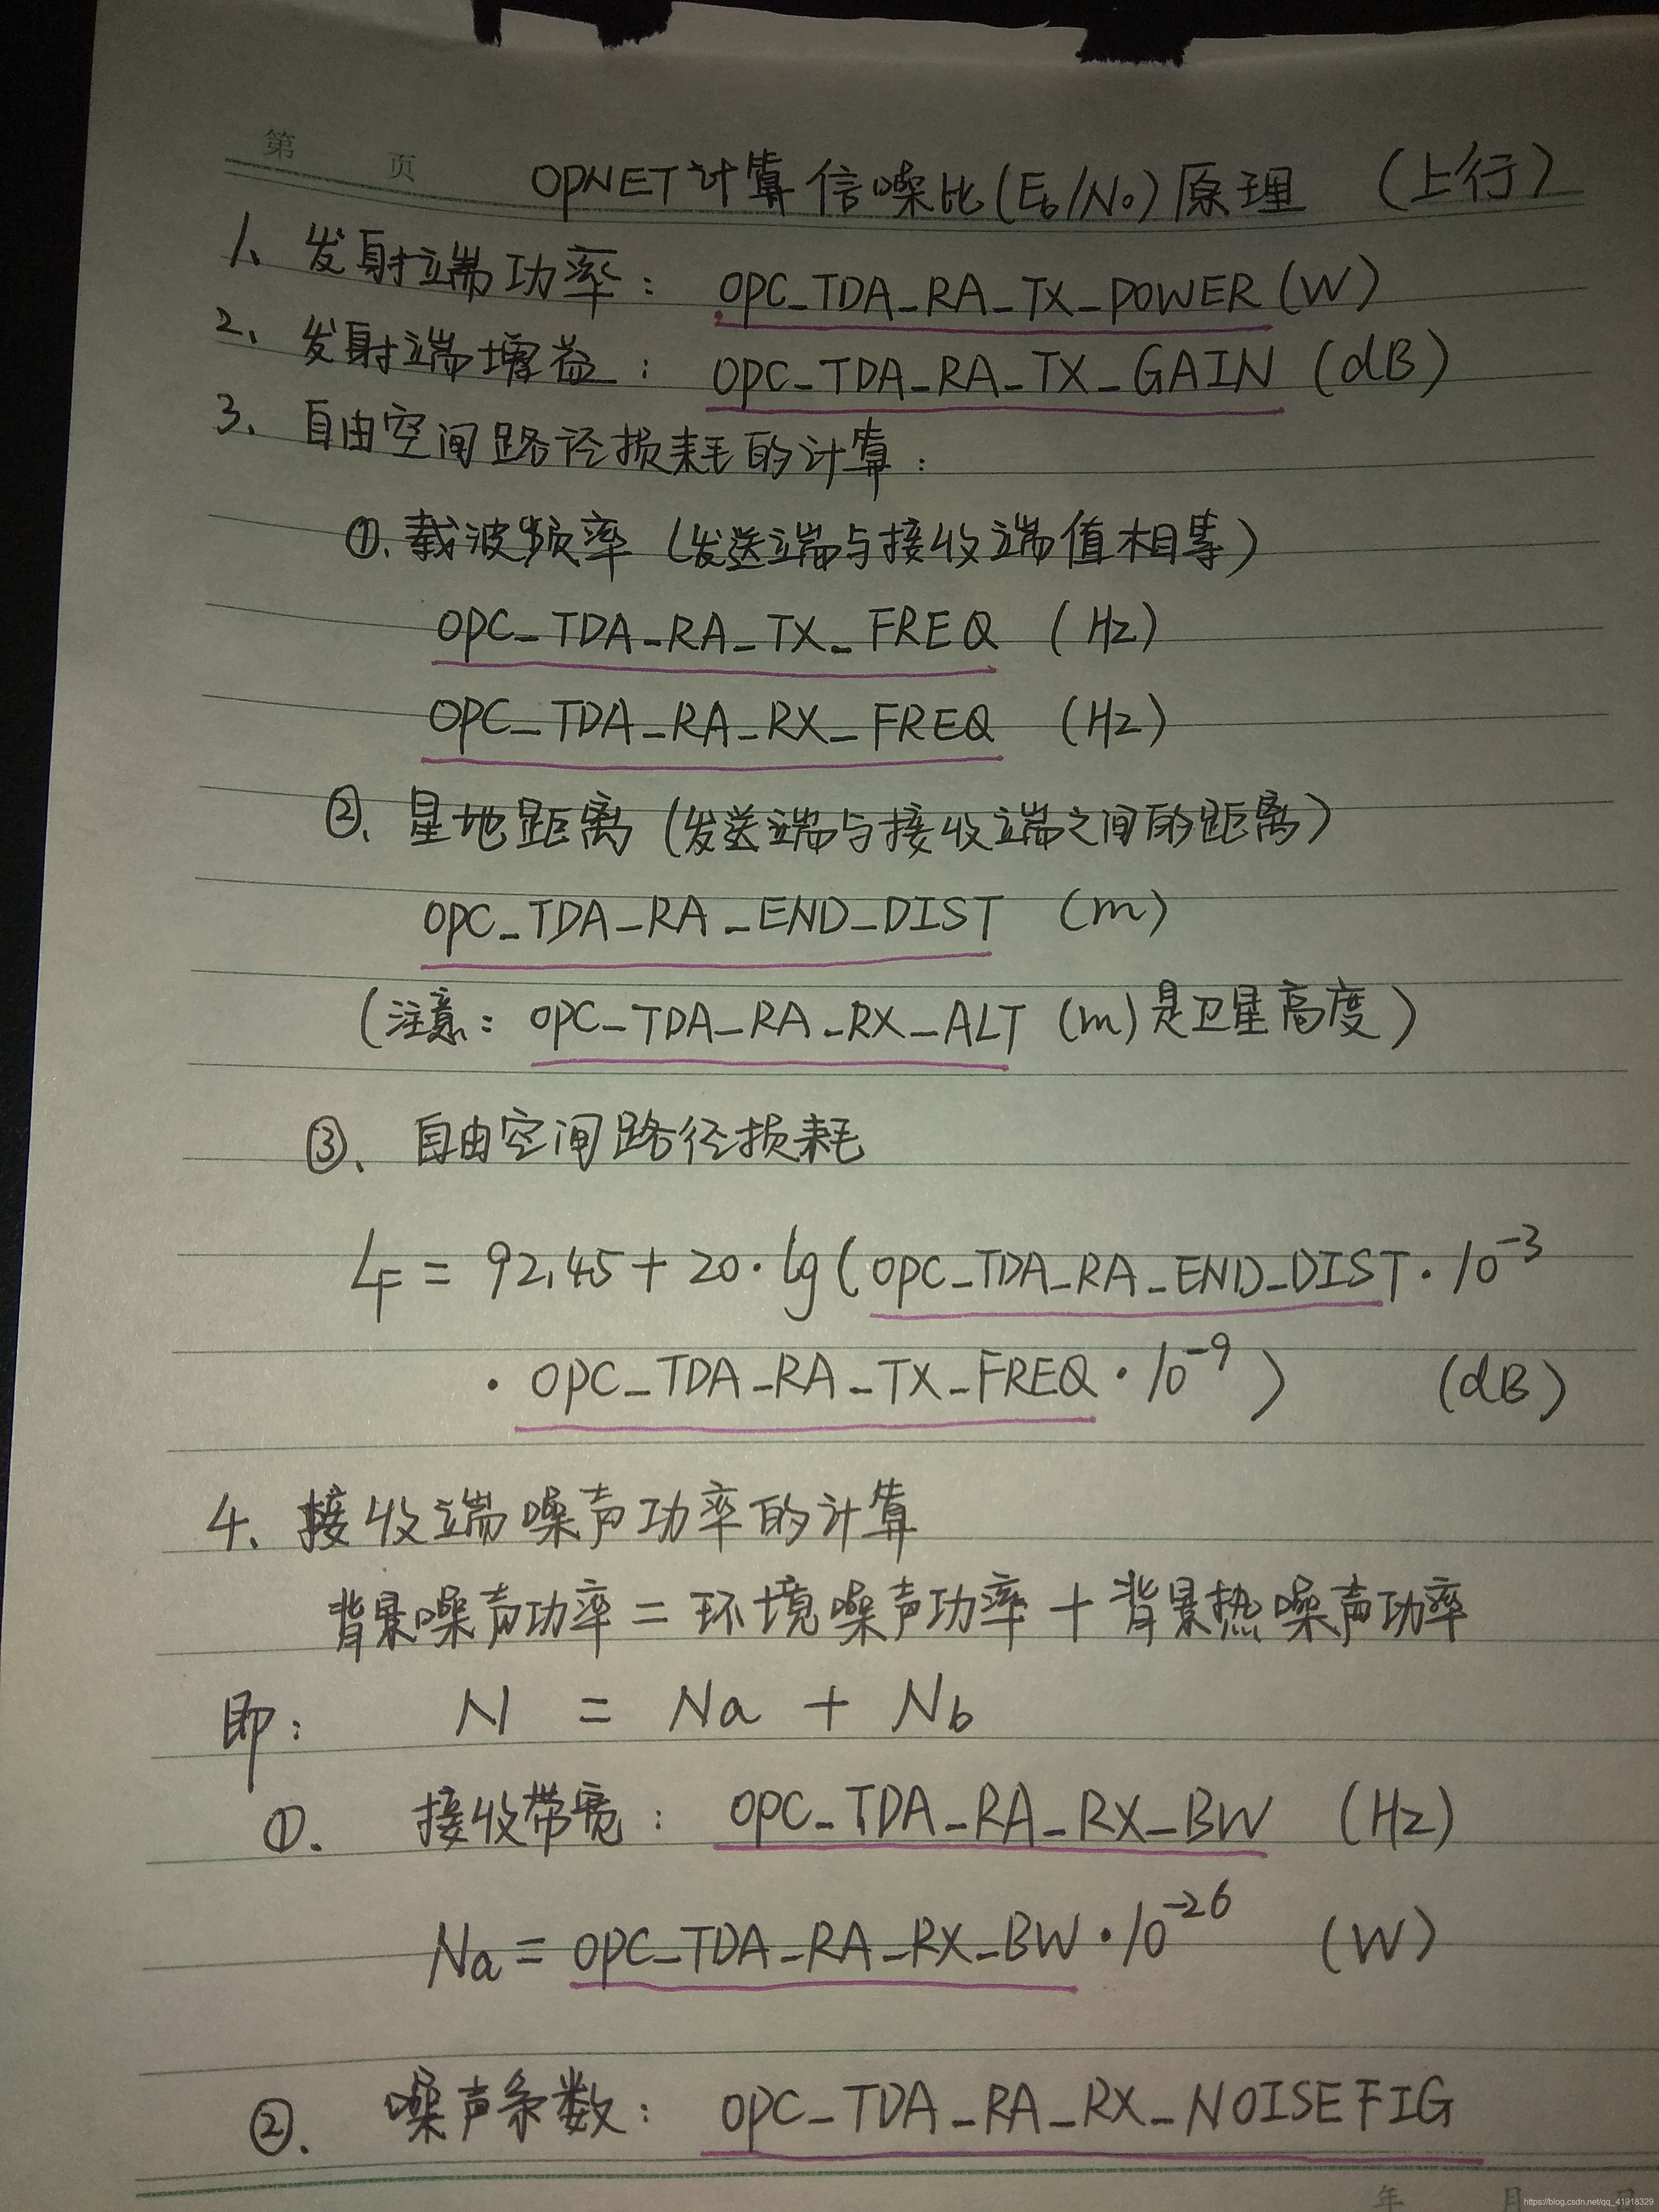 第 页
OPNET计算信噪比(Eb/N0)原理 (上行)
1、发射端功率: OPC_TDA_RA_TX_POWER (W)
2、发射端增益: OPC_TDA_RA_TX_GAIN (dB)
3、自由空间路径损耗的计算:
①、载波频率 (发送端与接收端值相等)
OPC_TDA_RA_TX_FREQ (Hz)
OPC_TDA_RA_RX_FREQ (Hz)
②、星地距离 (发送端与接收端之间的距离)
OPC_TDA_RA_END_DIST (m)
(注意: OPC_TDA_RA_RX_ALT (m) 是卫星高度)
③、自由空间路径损耗
LF = 92.45 + 20·lg(OPC_TDA_RA_END_DIST·10⁻³
·OPC_TDA_RA_TX_FREQ·10⁻⁹) (dB)
4、接收端噪声功率的计算
背景噪声功率 = 环境噪声功率 + 背景热噪声功率
即: N = Na + Nb
①、接收带宽: OPC_TDA_RA_RX_BW (Hz)
Na = OPC_TDA_RA_RX_BW·10⁻²⁶ (W)
②、噪声系数: OPC_TDA_RA_RX_NOISEFIG
年 月 日
https://blog.csdn.net/qq_41918329